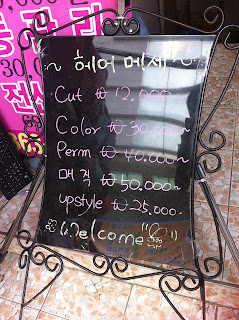 ~ 헤어 메제 ~
Cut ₩ 12.000~
Color ₩ 30.000~
Perm ₩ 40.000~
매직 ₩ 50.000~
upstyle ₩ 25.000~
Welcome